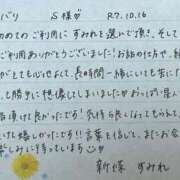 バリ S様が R7.10.16
めてのご利用に すみれを選んで頂き、そして
利用ありがとうございました!お話の仕方や
がとても心地よくて、長時間一緒にいると
も勝手に想像してしまいましたがおっぱい
頂けて良かったです!気持ち良くなってもら
嬉しかったです!!言葉を信じて、またお会
しみに待っています
新妻 すみれ